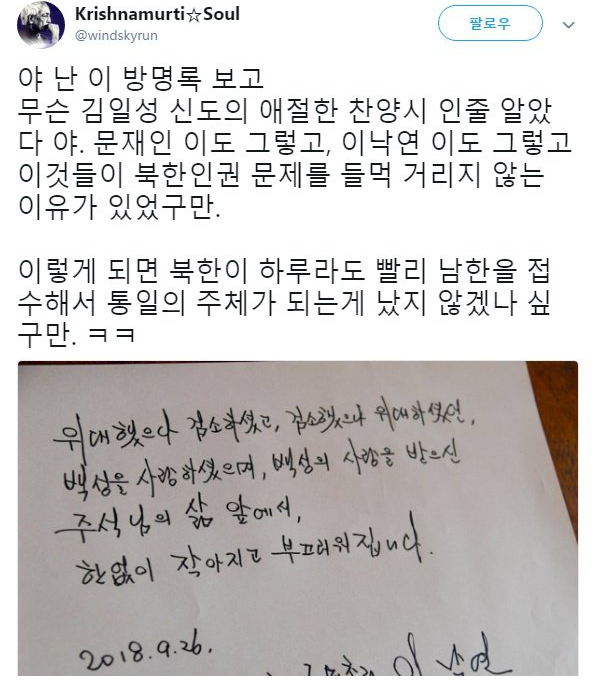 Krishnamurti☆Soul
@windskyrun
팔로우
야 난 이 방명록 보고
무슨 김일성 신도의 애절한 찬양시 인줄 알았
다 야. 문재인 이도 그렇고, 이낙연 이도 그렇고
이것들이 북한인권 문제를 들먹 거리지 않는
이유가 있었구만.
이렇게 되면 북한이 하루라도 빨리 남한을 접
수해서 통일의 주체가 되는게 났지 않겠나 싶
구만. ㅋㅋ
위대했으나 검소하셨고, 검소했으나 위대하셨던,
백성을 사랑하셨으며, 백성의 사랑을 받으신
주석님의 삶 앞에서,
한없이 작아지고 부끄러워집니다.
2018.9.26.
이낙연